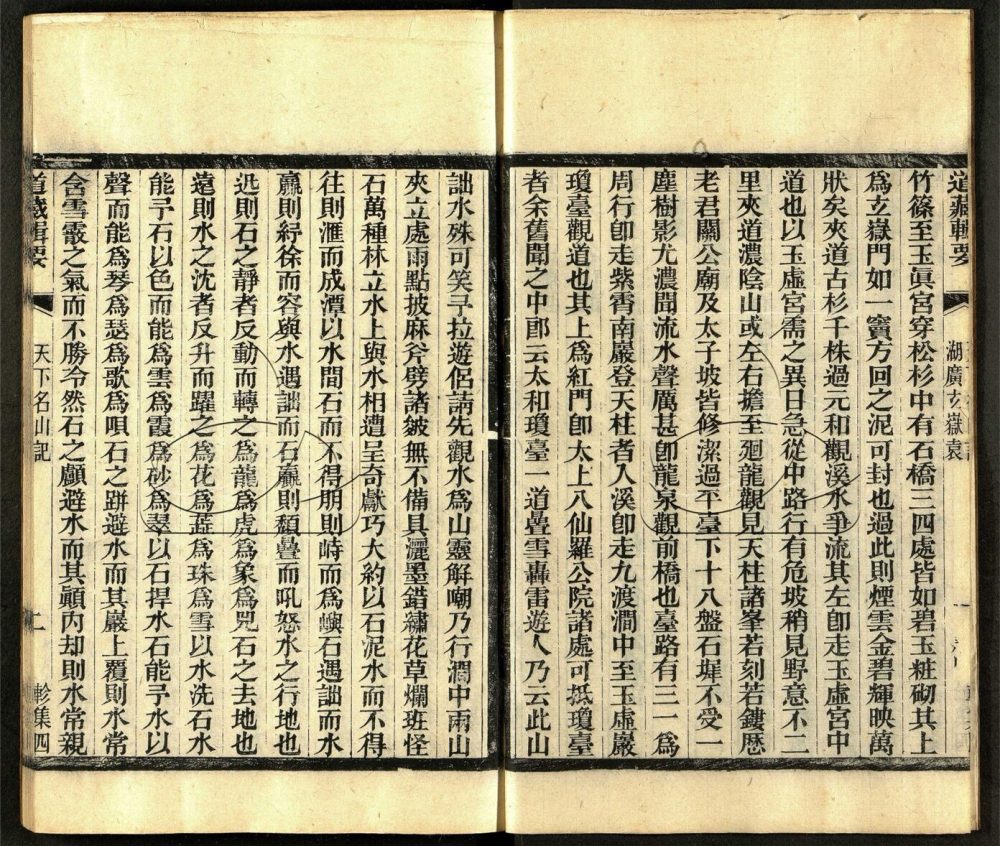 道藏輯要 湖廣玄嶽袁
竹篠至玉眞宮穿松杉中有石橋三四處皆如碧玉粧砌其上
爲玄嶽門如一竇方回之泥可封也過此則煙雲金碧輝映萬
狀矣夾道古杉千株過元和觀溪水爭流其左卽走玉虛宮中
道也以玉虛宮需之異日急從中路行有危坡稍見野意不二
里夾道濃陰山或左右擔至廻龍觀見天柱諸峯若刻若鏤歷
老君關公廟及太子坡皆修潔過平臺下十八盤石墀不受一
塵樹影尤濃聞流水聲厲甚卽龍泉觀前橋也臺路有三一爲
周行卽走紫霄南巖登天柱者入溪卽走九渡澗中至玉虛巖
瓊臺觀道也其上爲紅門卽太上八仙羅公院諸處可抵瓊臺
者余舊聞之中郎云太和瓊臺一道疊雪轟雷遊人乃云此山
詘水殊可笑予拉遊侶請先觀水爲山靈解嘲乃行澗中兩山
夾立處雨點披麻斧劈諸皴無不備具灑墨錯繡花草爛班怪
石萬種林立水上與水相遭呈奇獻巧大約以石泥水而不得
往則滙而成潭以水間石而不得朋則峙而爲嶼石遇詘而水
贏則紆徐而容與水遇詘而石贏則頹疊而吼怒水之行地也
迅則石之靜者反動而轉之爲龍爲虎爲象爲兕石之去地也
遠則水之沈者反升而躍之爲花爲蕋爲珠爲雪以水洗石水
能予石以色而能爲雲爲霞爲砂爲翠以石捍水石能予水以
聲而能爲琴爲瑟爲歌爲唄石之跰避水而其巖上覆則水常
含雪霰之氣而不勝冷然石之顱避水而其顚內却則水常親
道藏輯要 天下名山記 軫集四